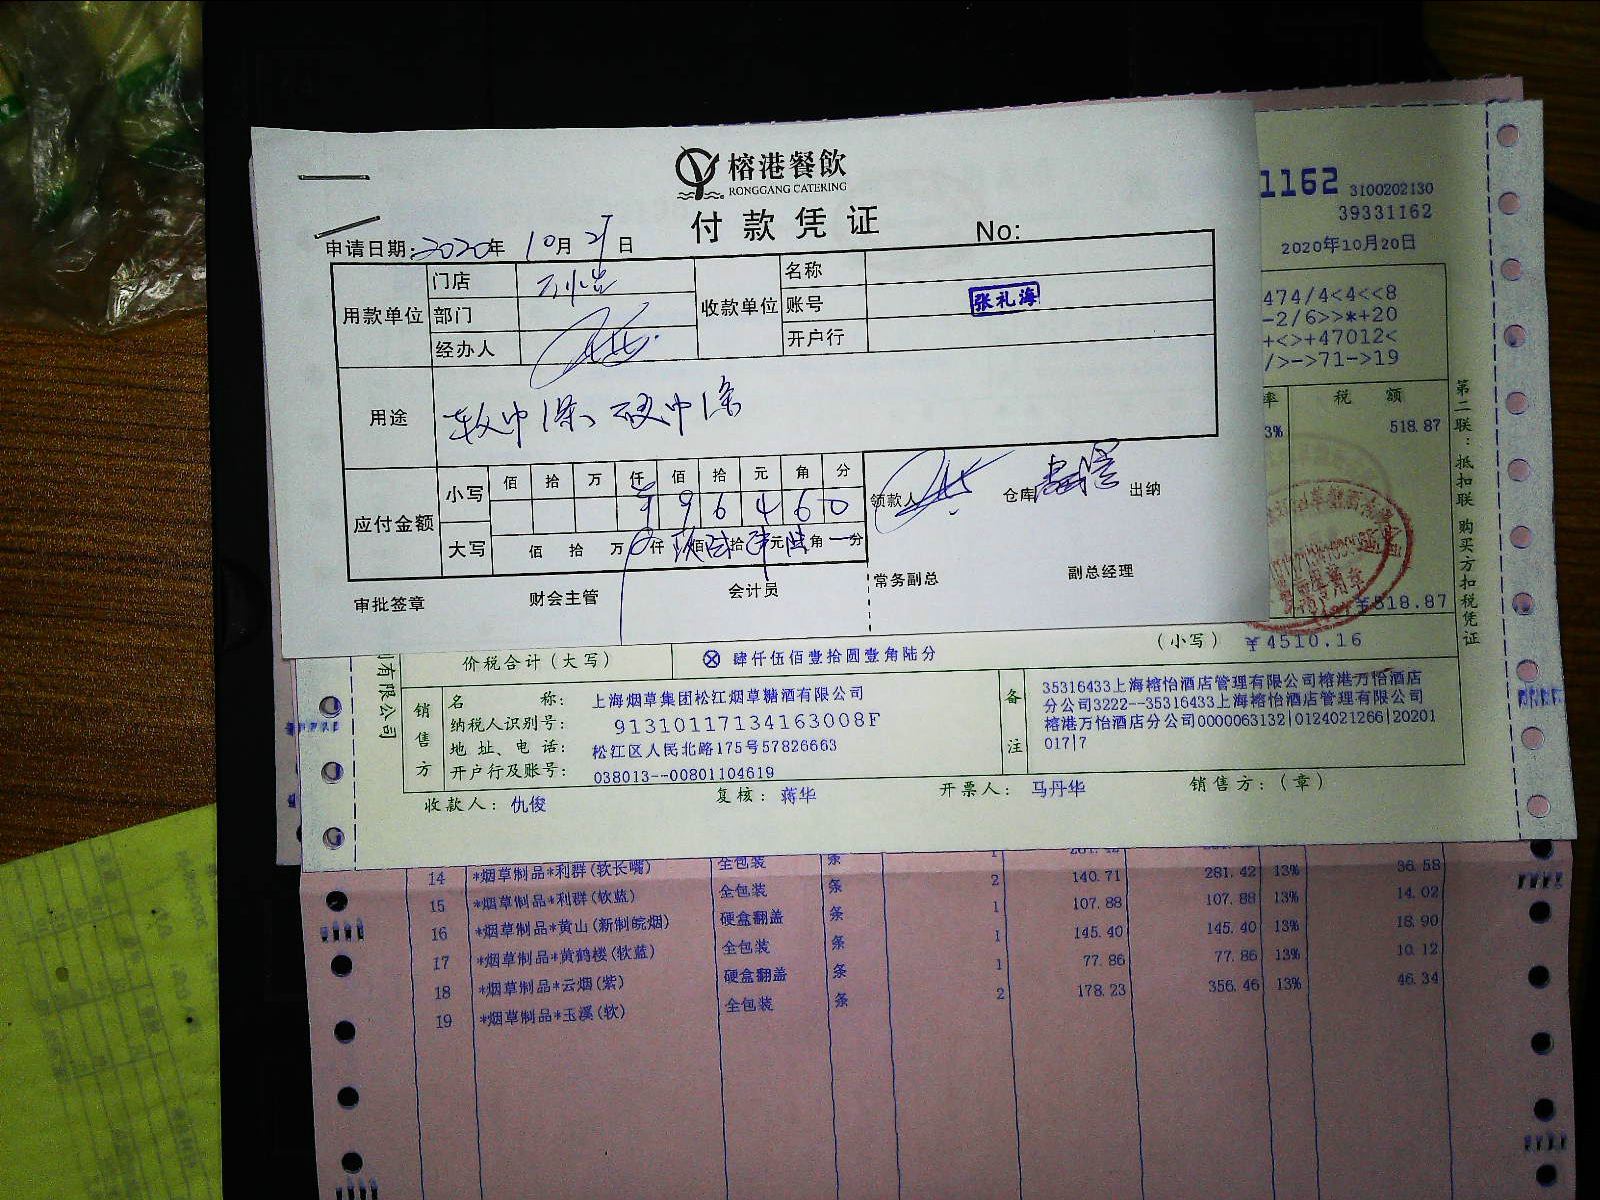 榕港餐飲
RONGGANG CATERING
付款凭证
No:
申请日期:2020年10月21日
用款单位
门店
万怡
部门
经办人
收款单位
名称
账号
张礼海
开户行
用途
软中1条、硬中1条
应付金额
小写
佰 拾 万 仟 佰 拾 元 角 分
¥ 9 6 4 6 0
大写
佰 拾 万 仟 玖佰陆拾肆元陆角一分
领款人
仓库
出纳
审批签章
财会主管
会计员
常务副总
副总经理
1162 3100202130
39331162
2020年10月20日
474/4<4<<8
-2/6>>*+20
+<>+47012<
/>->71->19
率 税 额
3% 518.87
¥518.87
第二联:抵扣联 购买方扣税凭证
有限公司
价税合计(大写)
ⓧ 肆仟伍佰壹拾圆壹角陆分
(小写) ¥4510.16
销售方
名 称: 上海烟草集团松江烟草糖酒有限公司
纳税人识别号: 91310117134163008F
地址、电话: 松江区人民北路175号57826663
开户行及账号: 038013--00801104619
备注
35316433上海榕怡酒店管理有限公司榕港万怡酒店
分公司3222--35316433上海榕怡酒店管理有限公司
榕港万怡酒店分公司0000063132|0124021266|20201
017|7
收款人: 仇俊
复核: 蒋华
开票人: 马丹华
销售方:(章)
14 *烟草制品*利群(软长嘴) 全包装 条 2 140.71 281.42 13% 36.58
15 *烟草制品*利群(软蓝) 全包装 条 1 107.88 107.88 13% 14.02
16 *烟草制品*黄山(新制皖烟) 硬盒翻盖 条 1 145.40 145.40 13% 18.90
17 *烟草制品*黄鹤楼(软蓝) 全包装 条 1 77.86 77.86 13% 10.12
18 *烟草制品*云烟(紫) 硬盒翻盖 条 2 178.23 356.46 13% 46.34
19 *烟草制品*玉溪(软) 全包装 条